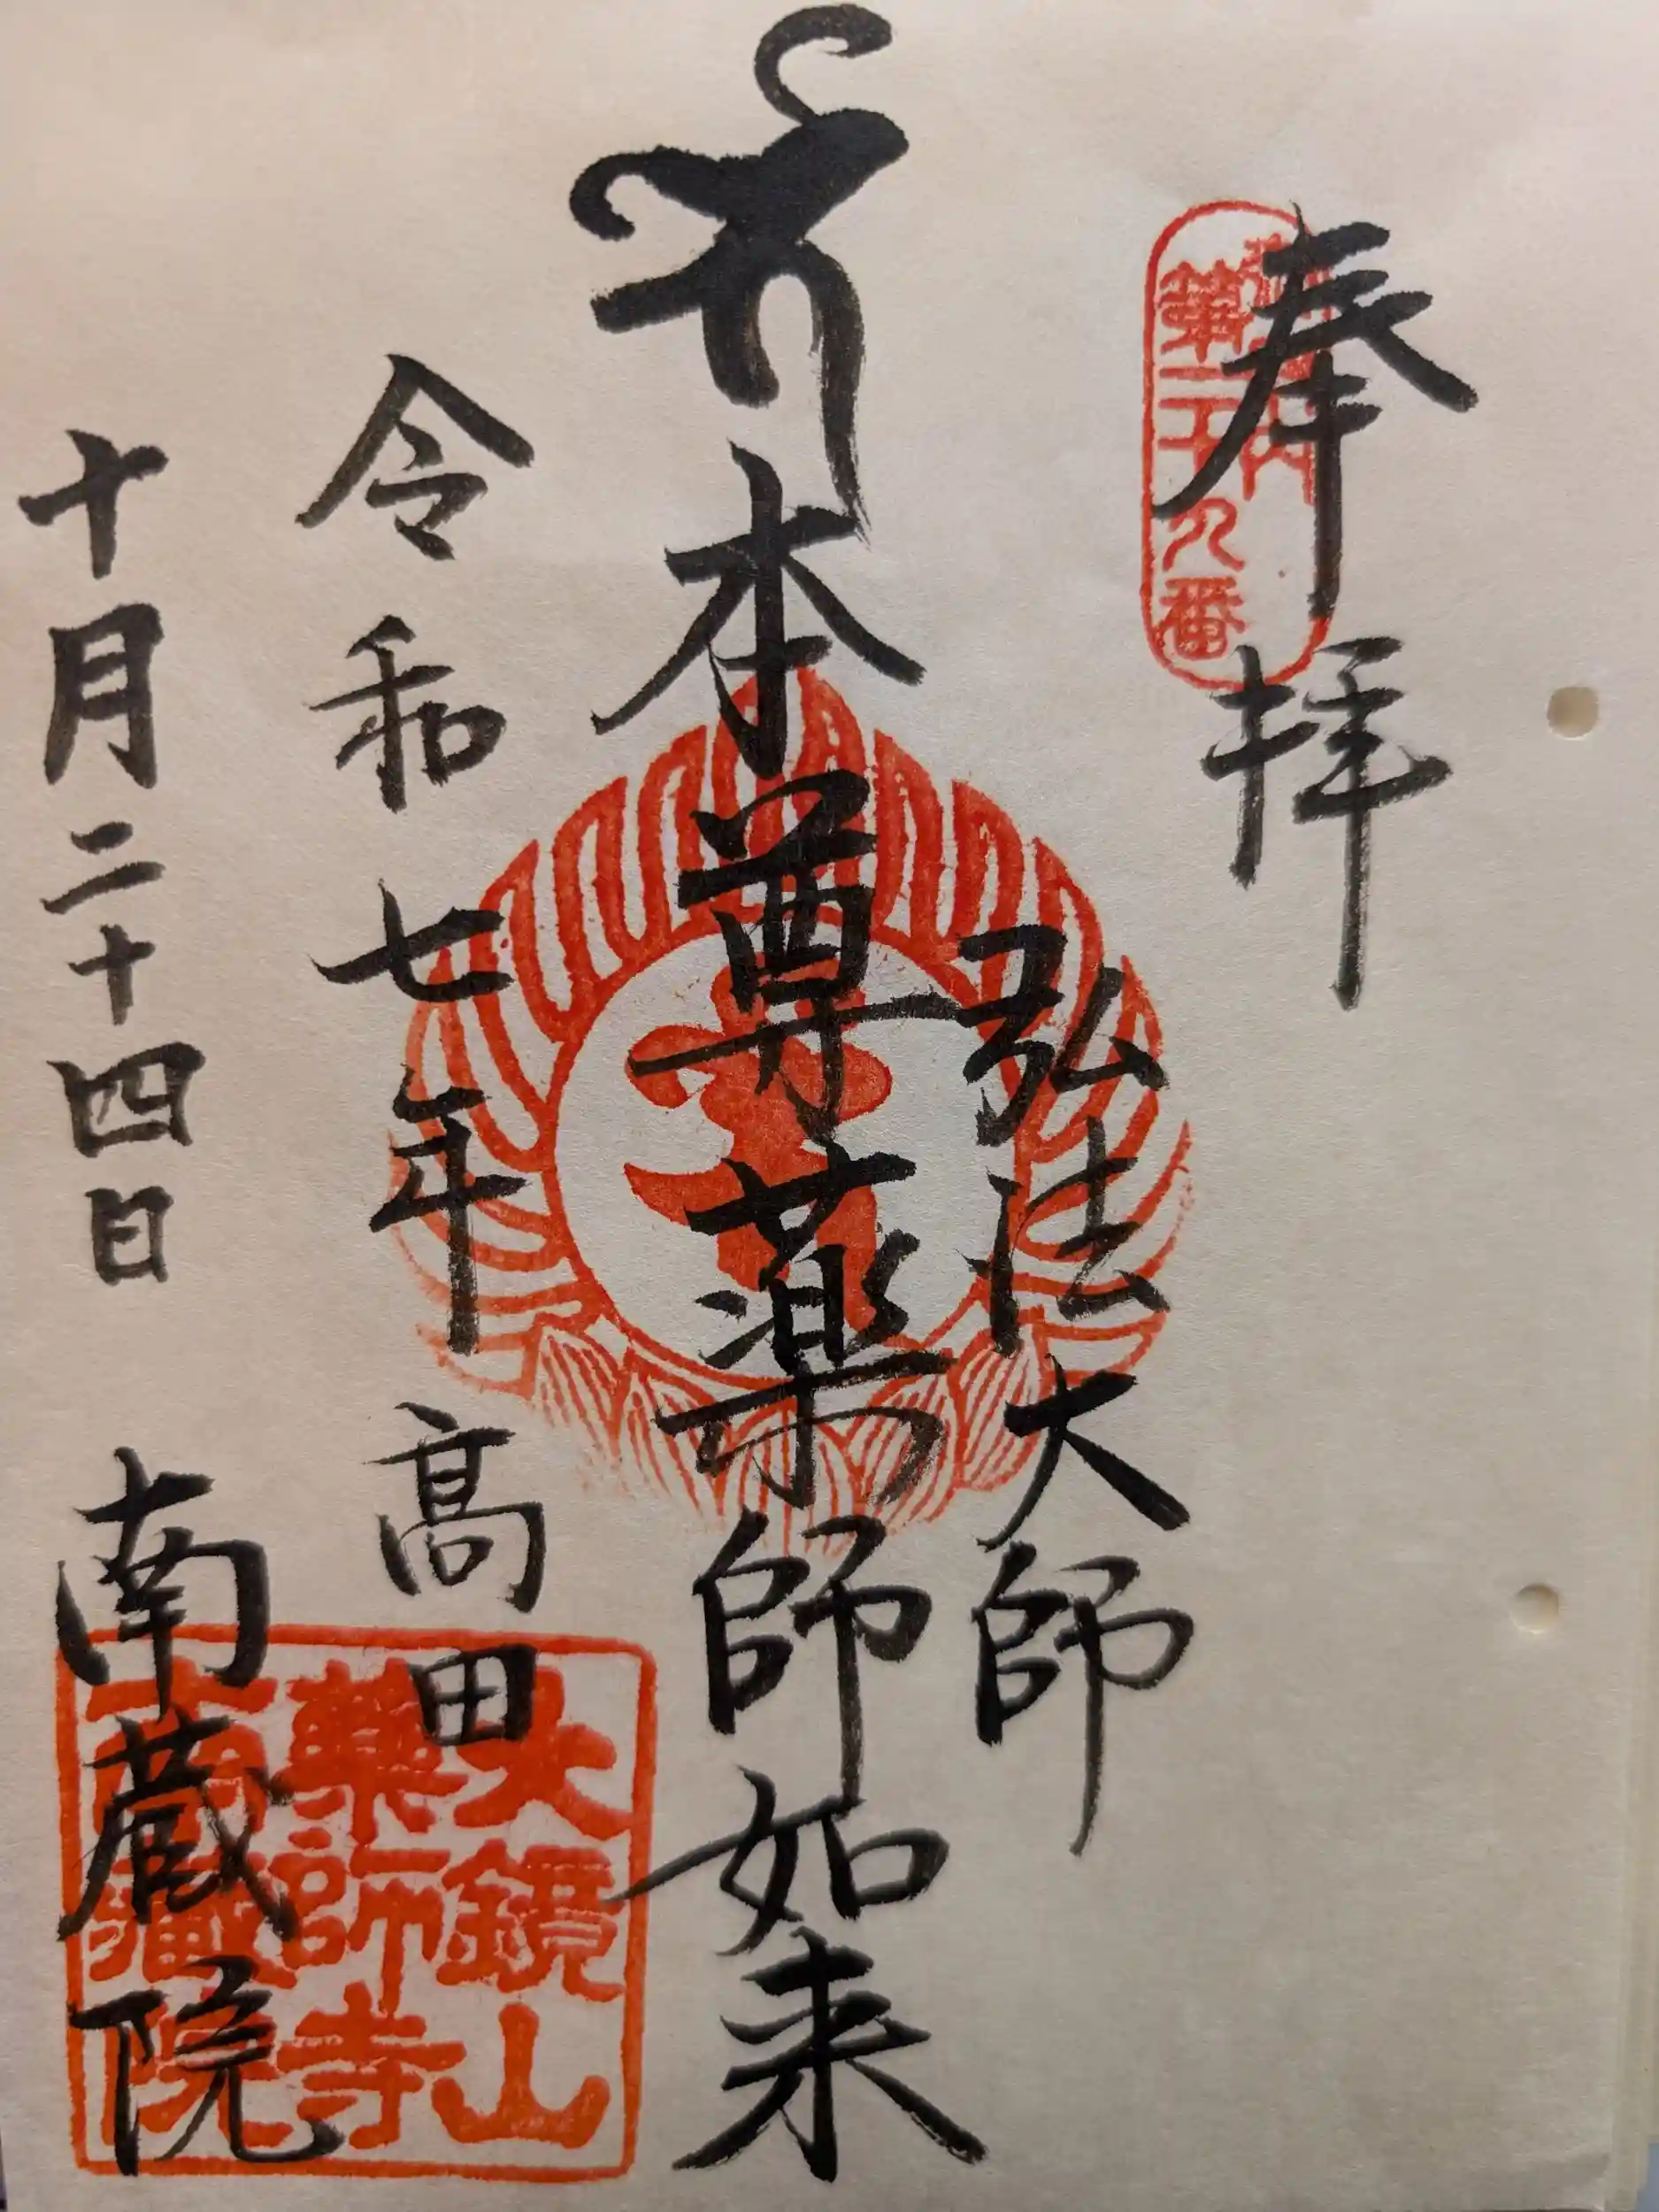 奉拝
第二十九番
弘法大師
本尊薬師如来
令和七年 高田
十月二十四日 南蔵院
大鏡山
薬師寺
南蔵院